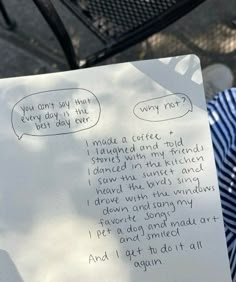 you can't say that
every day is the
best day ever
why not?
I made a coffee +
I laughed and told
stories with my friends
I danced in the kitchen
I saw the sunset and
heard the birds sing
I drove with the windows
down and sang my
favorite songs
I pet a dog and made art
and smiled
And I get to do it all
again.